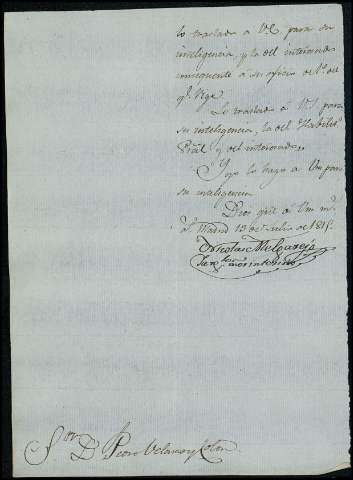 lo traslado á V.E. para su
inteligencia, y la del interesado
consequente á su oficio de 1º del
q.e rige
Lo traslado á V.S. para
su inteligencia, la del Habilit.
Gral y del interesado
Y yo lo hago a Vm para
su inteligencia
Dios gue á Vm m.
a.s Madrid 13 de Julio de 181
Nicolas Melgarejo
interino
S.or D.n Pedro Velasco y Colon